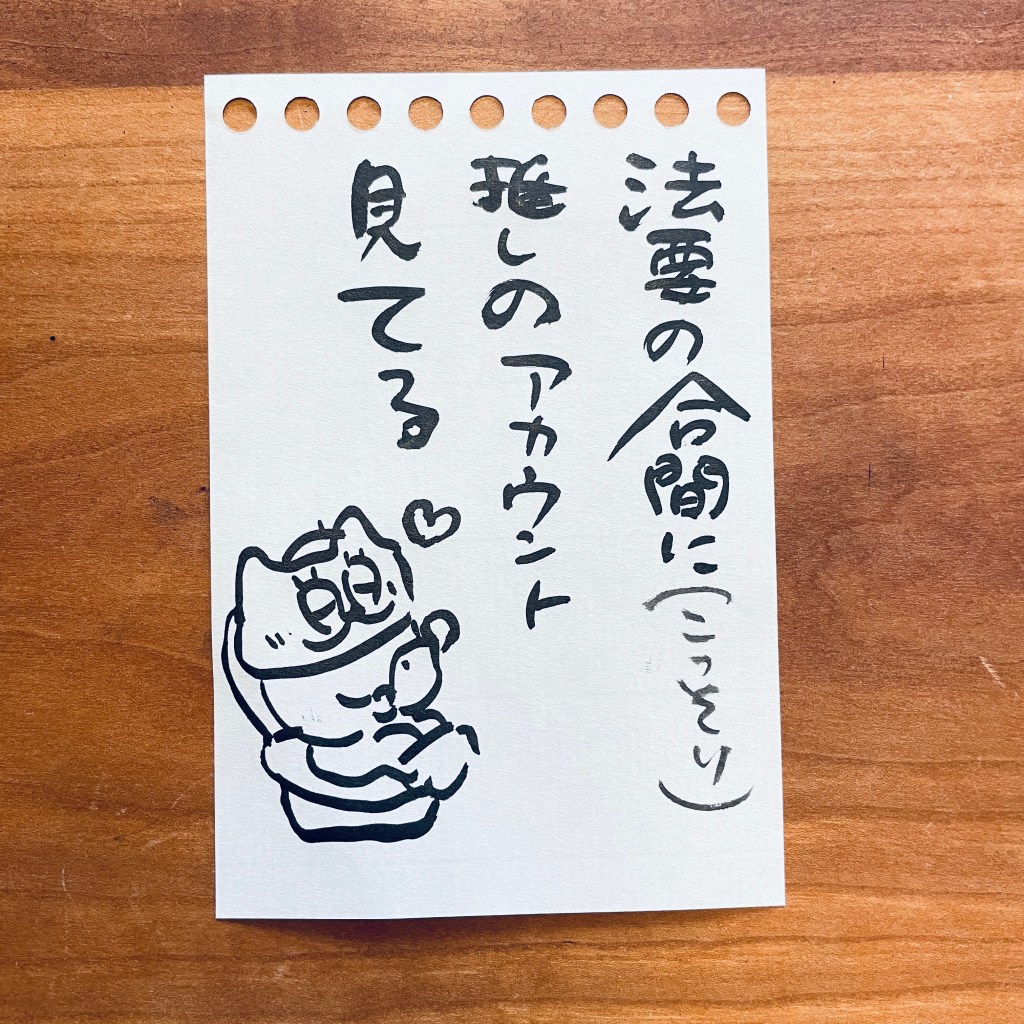 法要の合間に(こっそり)
推しのアカウント
見てる